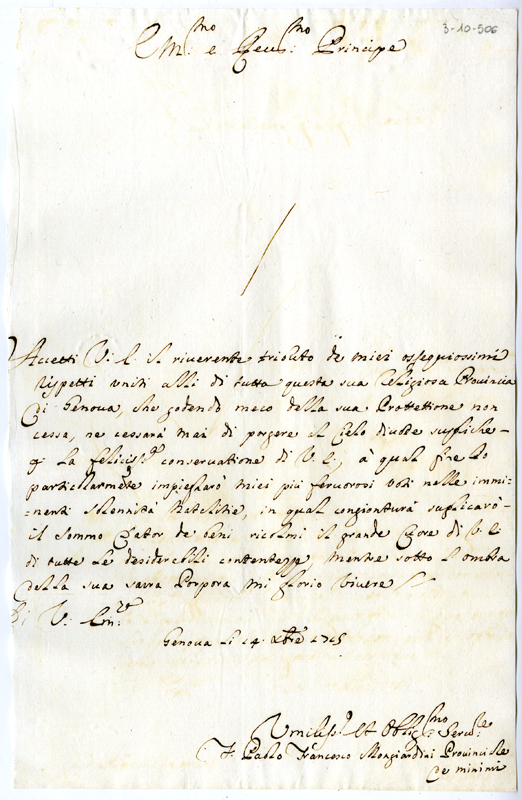 3-10-506
Em:mo e Reu:mo Principe
Accetti V: E. il riuerente tributo de miei osseguiossimi
rispetti vniti alli di tutta questa sua Religiosa Prouincia
di Genoua, che godendo meco della sua Prottettione non
cessa, ne cessarà mai di porgere al Cielo diuote suppliche
p la feliciss:a conseruatione di V. E., à qual fine Io
particolarmẽte impiegharò miei più feruorosi voti nelle immi-
nenti solennità Natalitie, in qual congiontura suplicarò
il sommo Dator de beni ricolmi il grande Cuore di V. E.
di tutte le desiderabili contentezze, mentre sotto l'ombra
della sua sacra Porpora mi glorio viuere
Di V: Em:za
Genoua li 14 Xbre 1715
Vmiliss:o et Obblig:mo Seruo:re
F. Paolo Francesco Mongiardini Prouinciale
de minimi